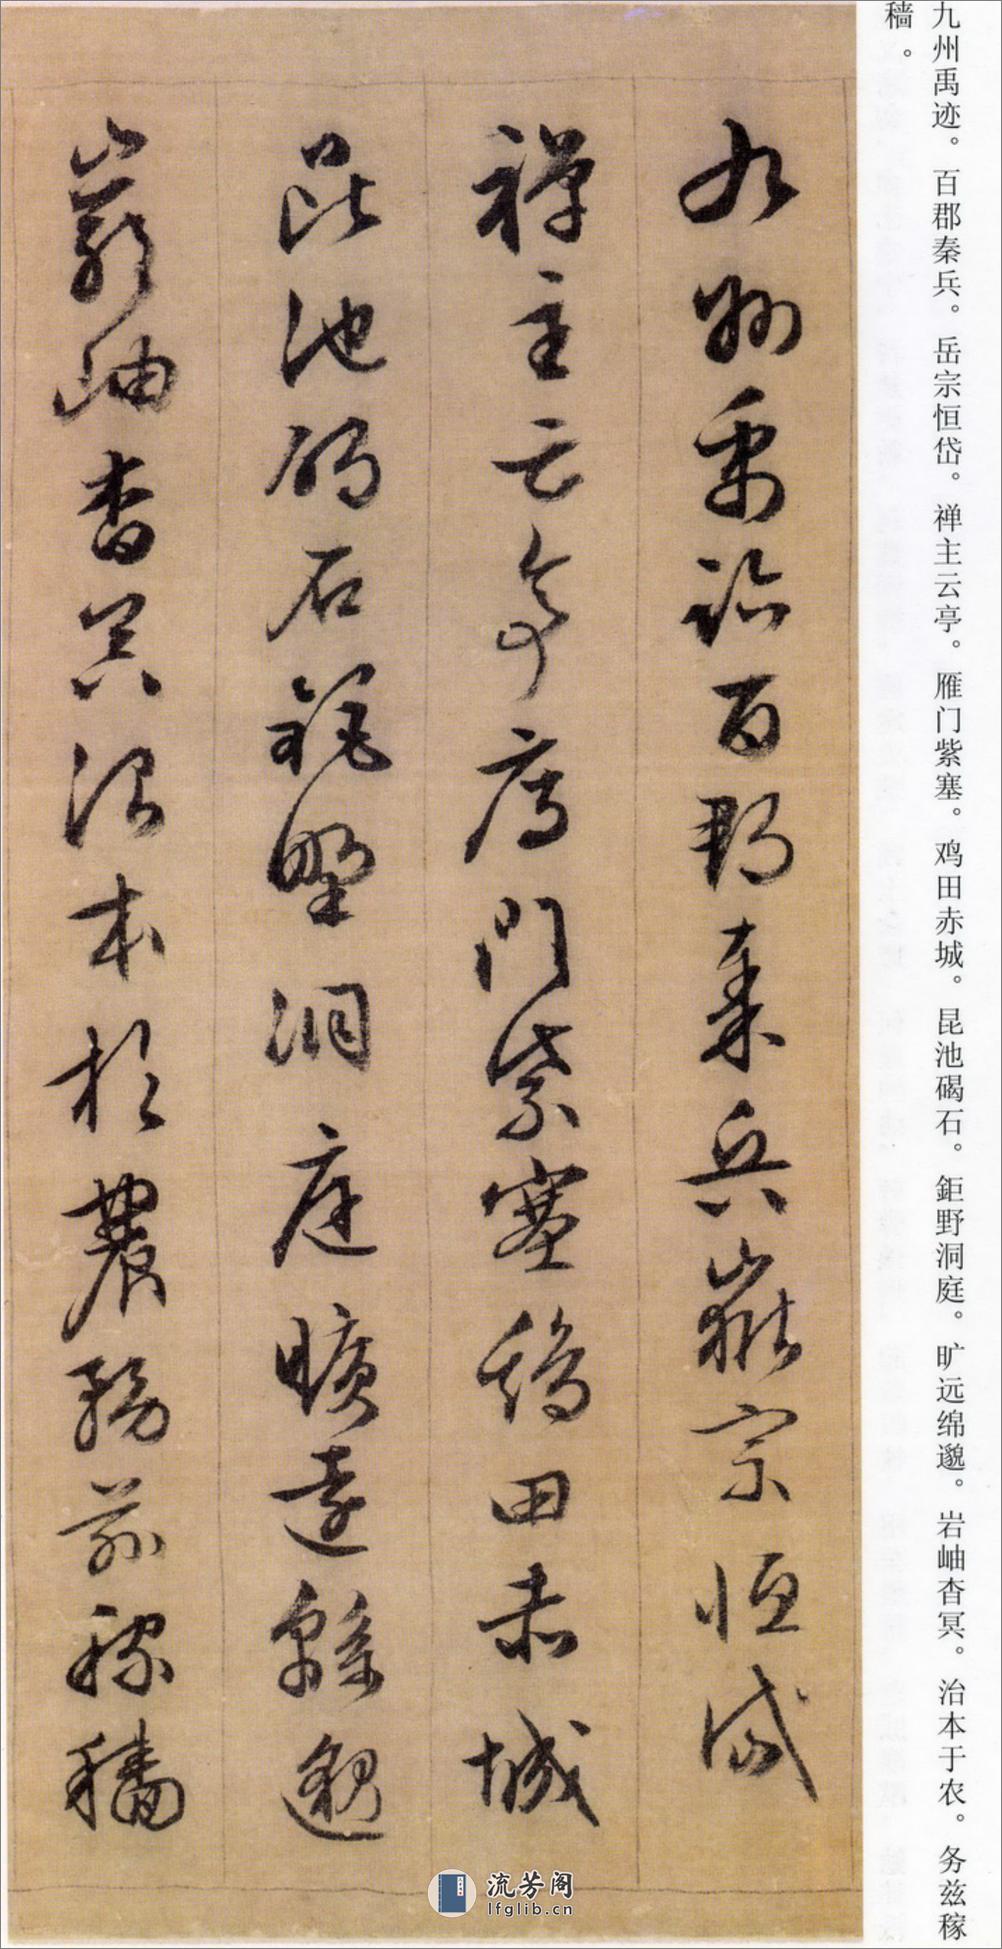 九州禹迹。百郡秦兵。岳宗恒岱。禅主云亭。雁门紫塞。鸡田赤城。昆池碣石。鉅野洞庭。旷远绵邈。岩岫杳冥。治本于农。务兹稼
穑。
九州禹跡百郡秦兵嶽宗恒岱
禪主云亭鴈門紫塞鷄田赤城
昆池碣石鉅野洞庭曠遠緜邈
巖岫杳冥治本於農務茲稼穡
流芳阁
lfglib.cn